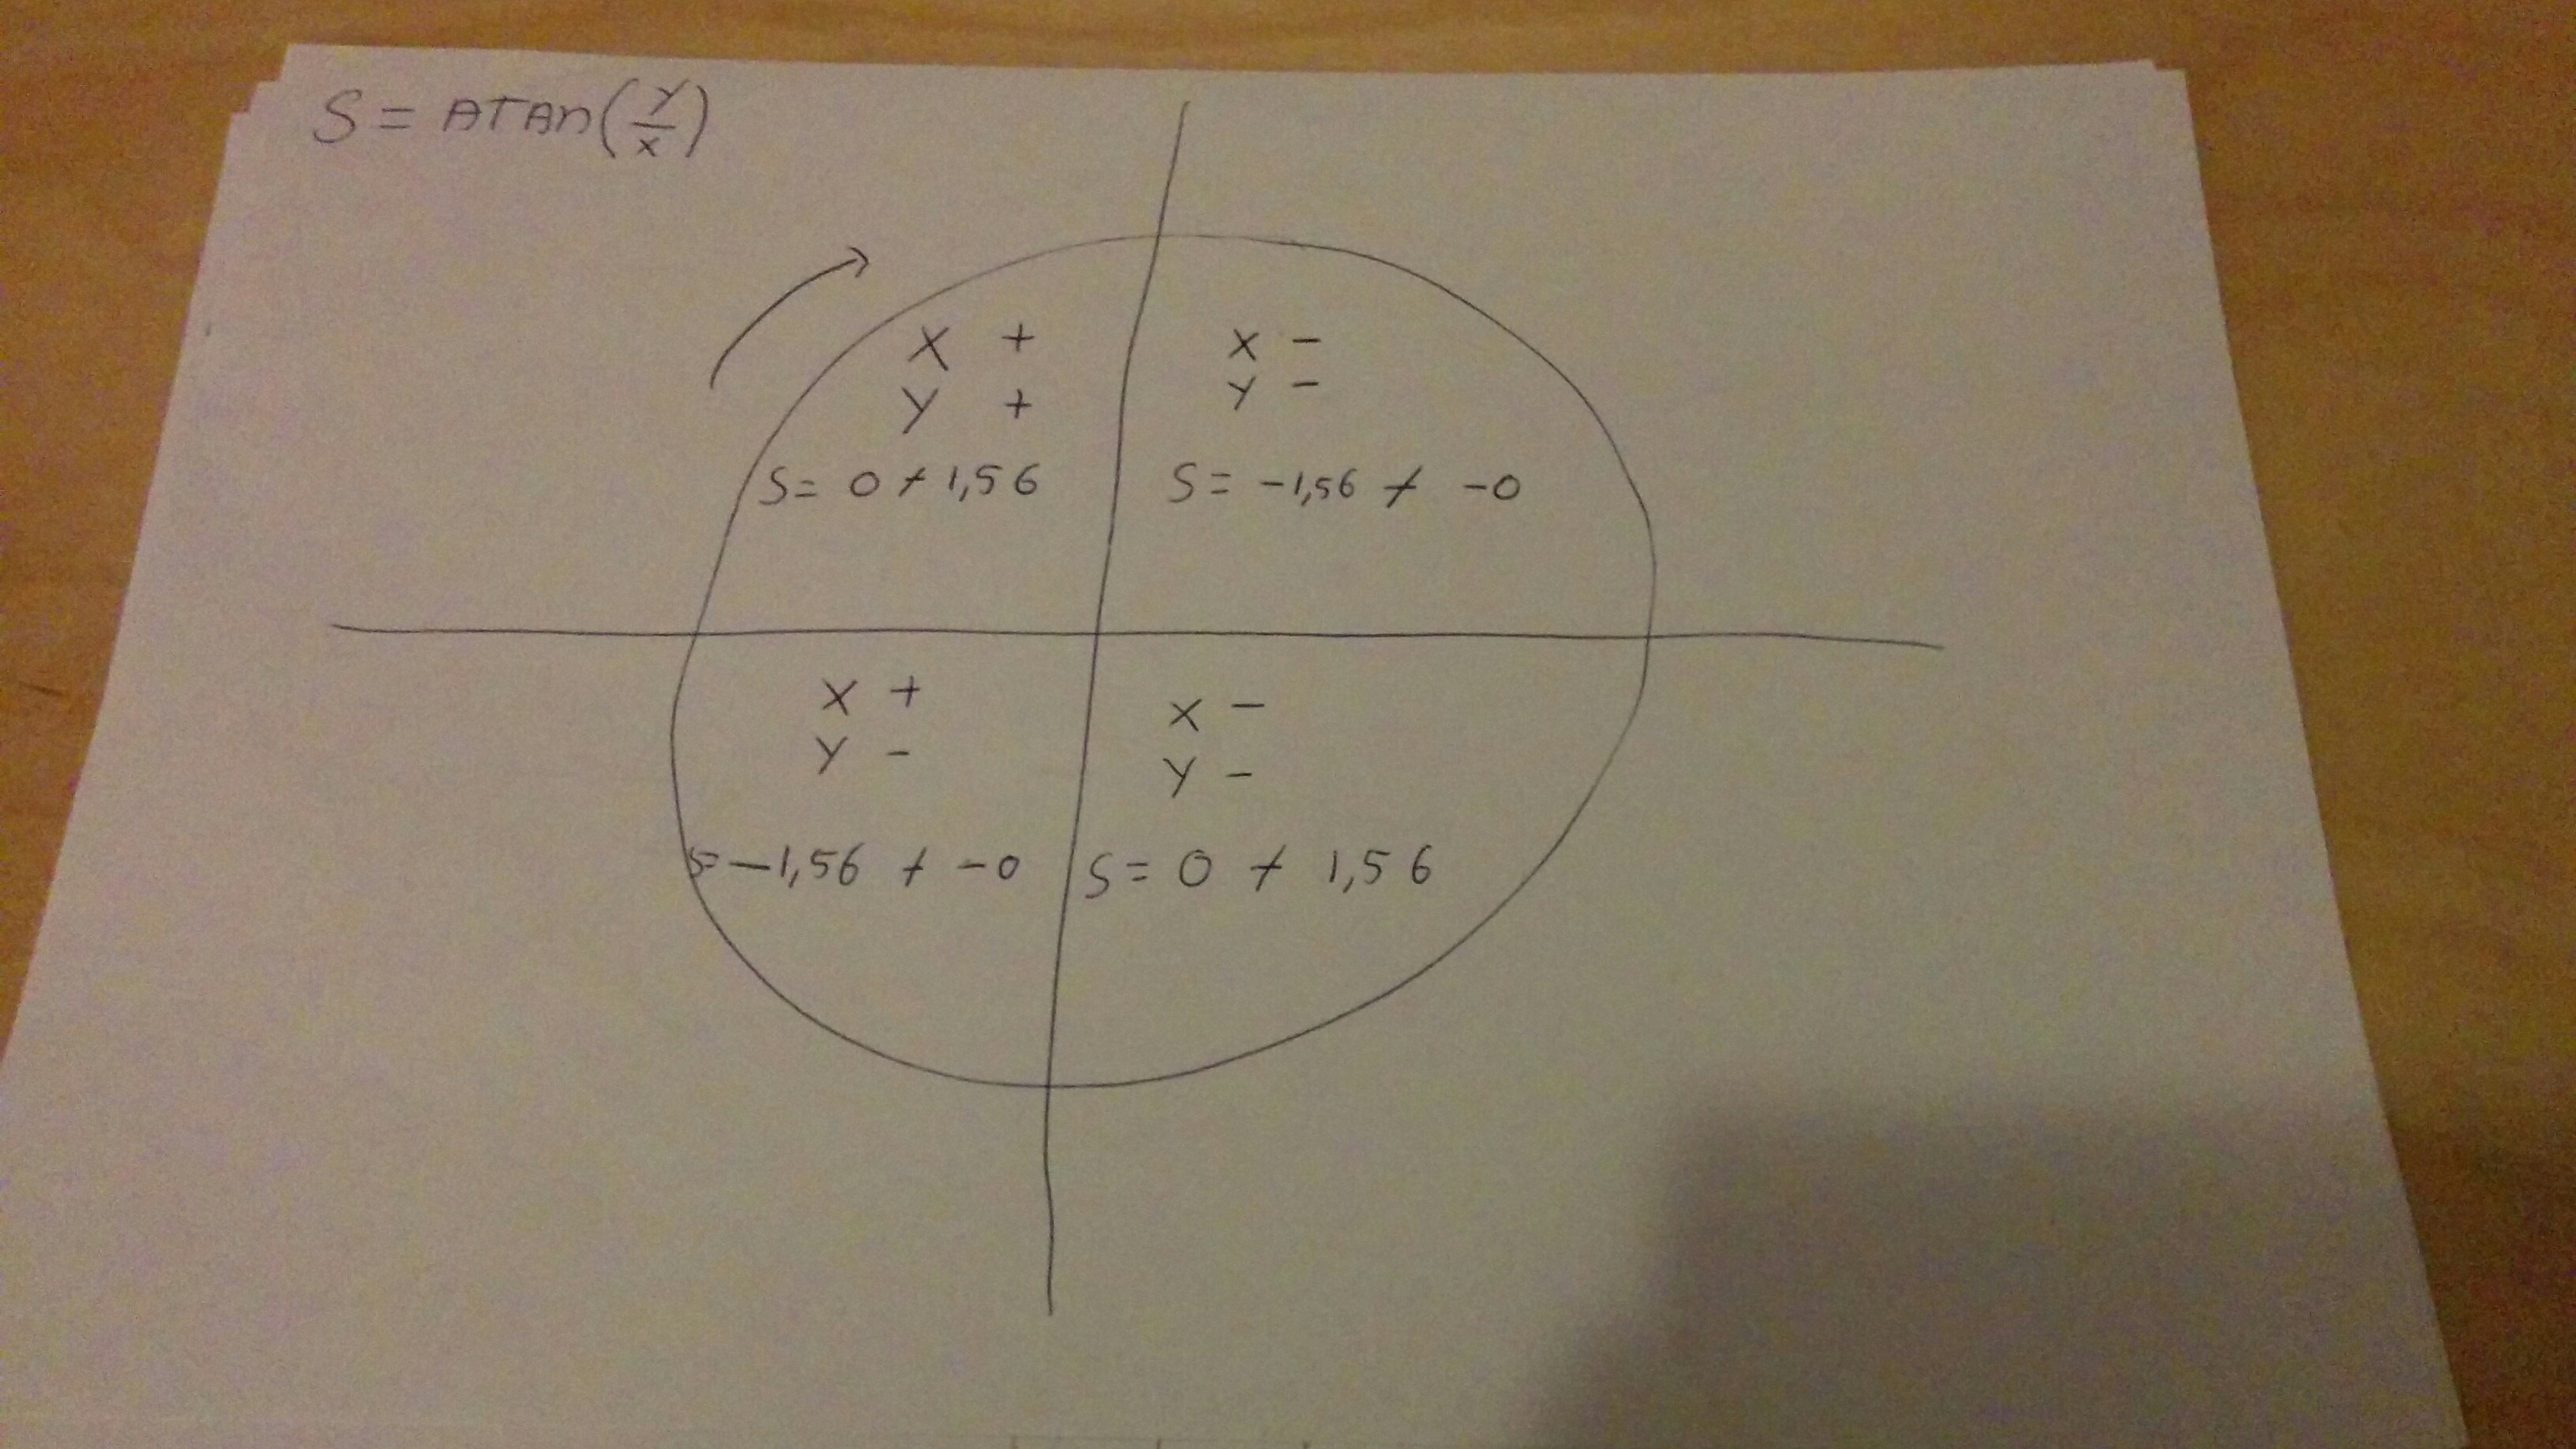 S = ATAn(Y/X)
X +
Y +
S= 0 ÷ 1,56
X -
Y -
S= -1,56 ÷ -0
X +
Y -
S= -1,56 ÷ -0
X -
Y -
S= 0 ÷ 1,56